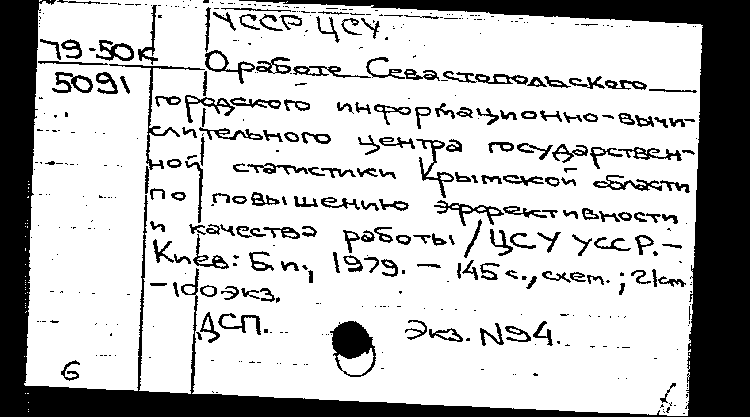 УССР. ЦСУ.
79-50к
О работе Севастопольского
5091
городского информационно-вычи-
слительного центра государствен-
ной статистики Крымской области
по повышению эффективности
и качества работы / ЦСУ УССР.-
Киев: Б.и., 1979. - 145 с., схем.; 21 см
- 100 экз.
ДСП. Экз. N94.
6